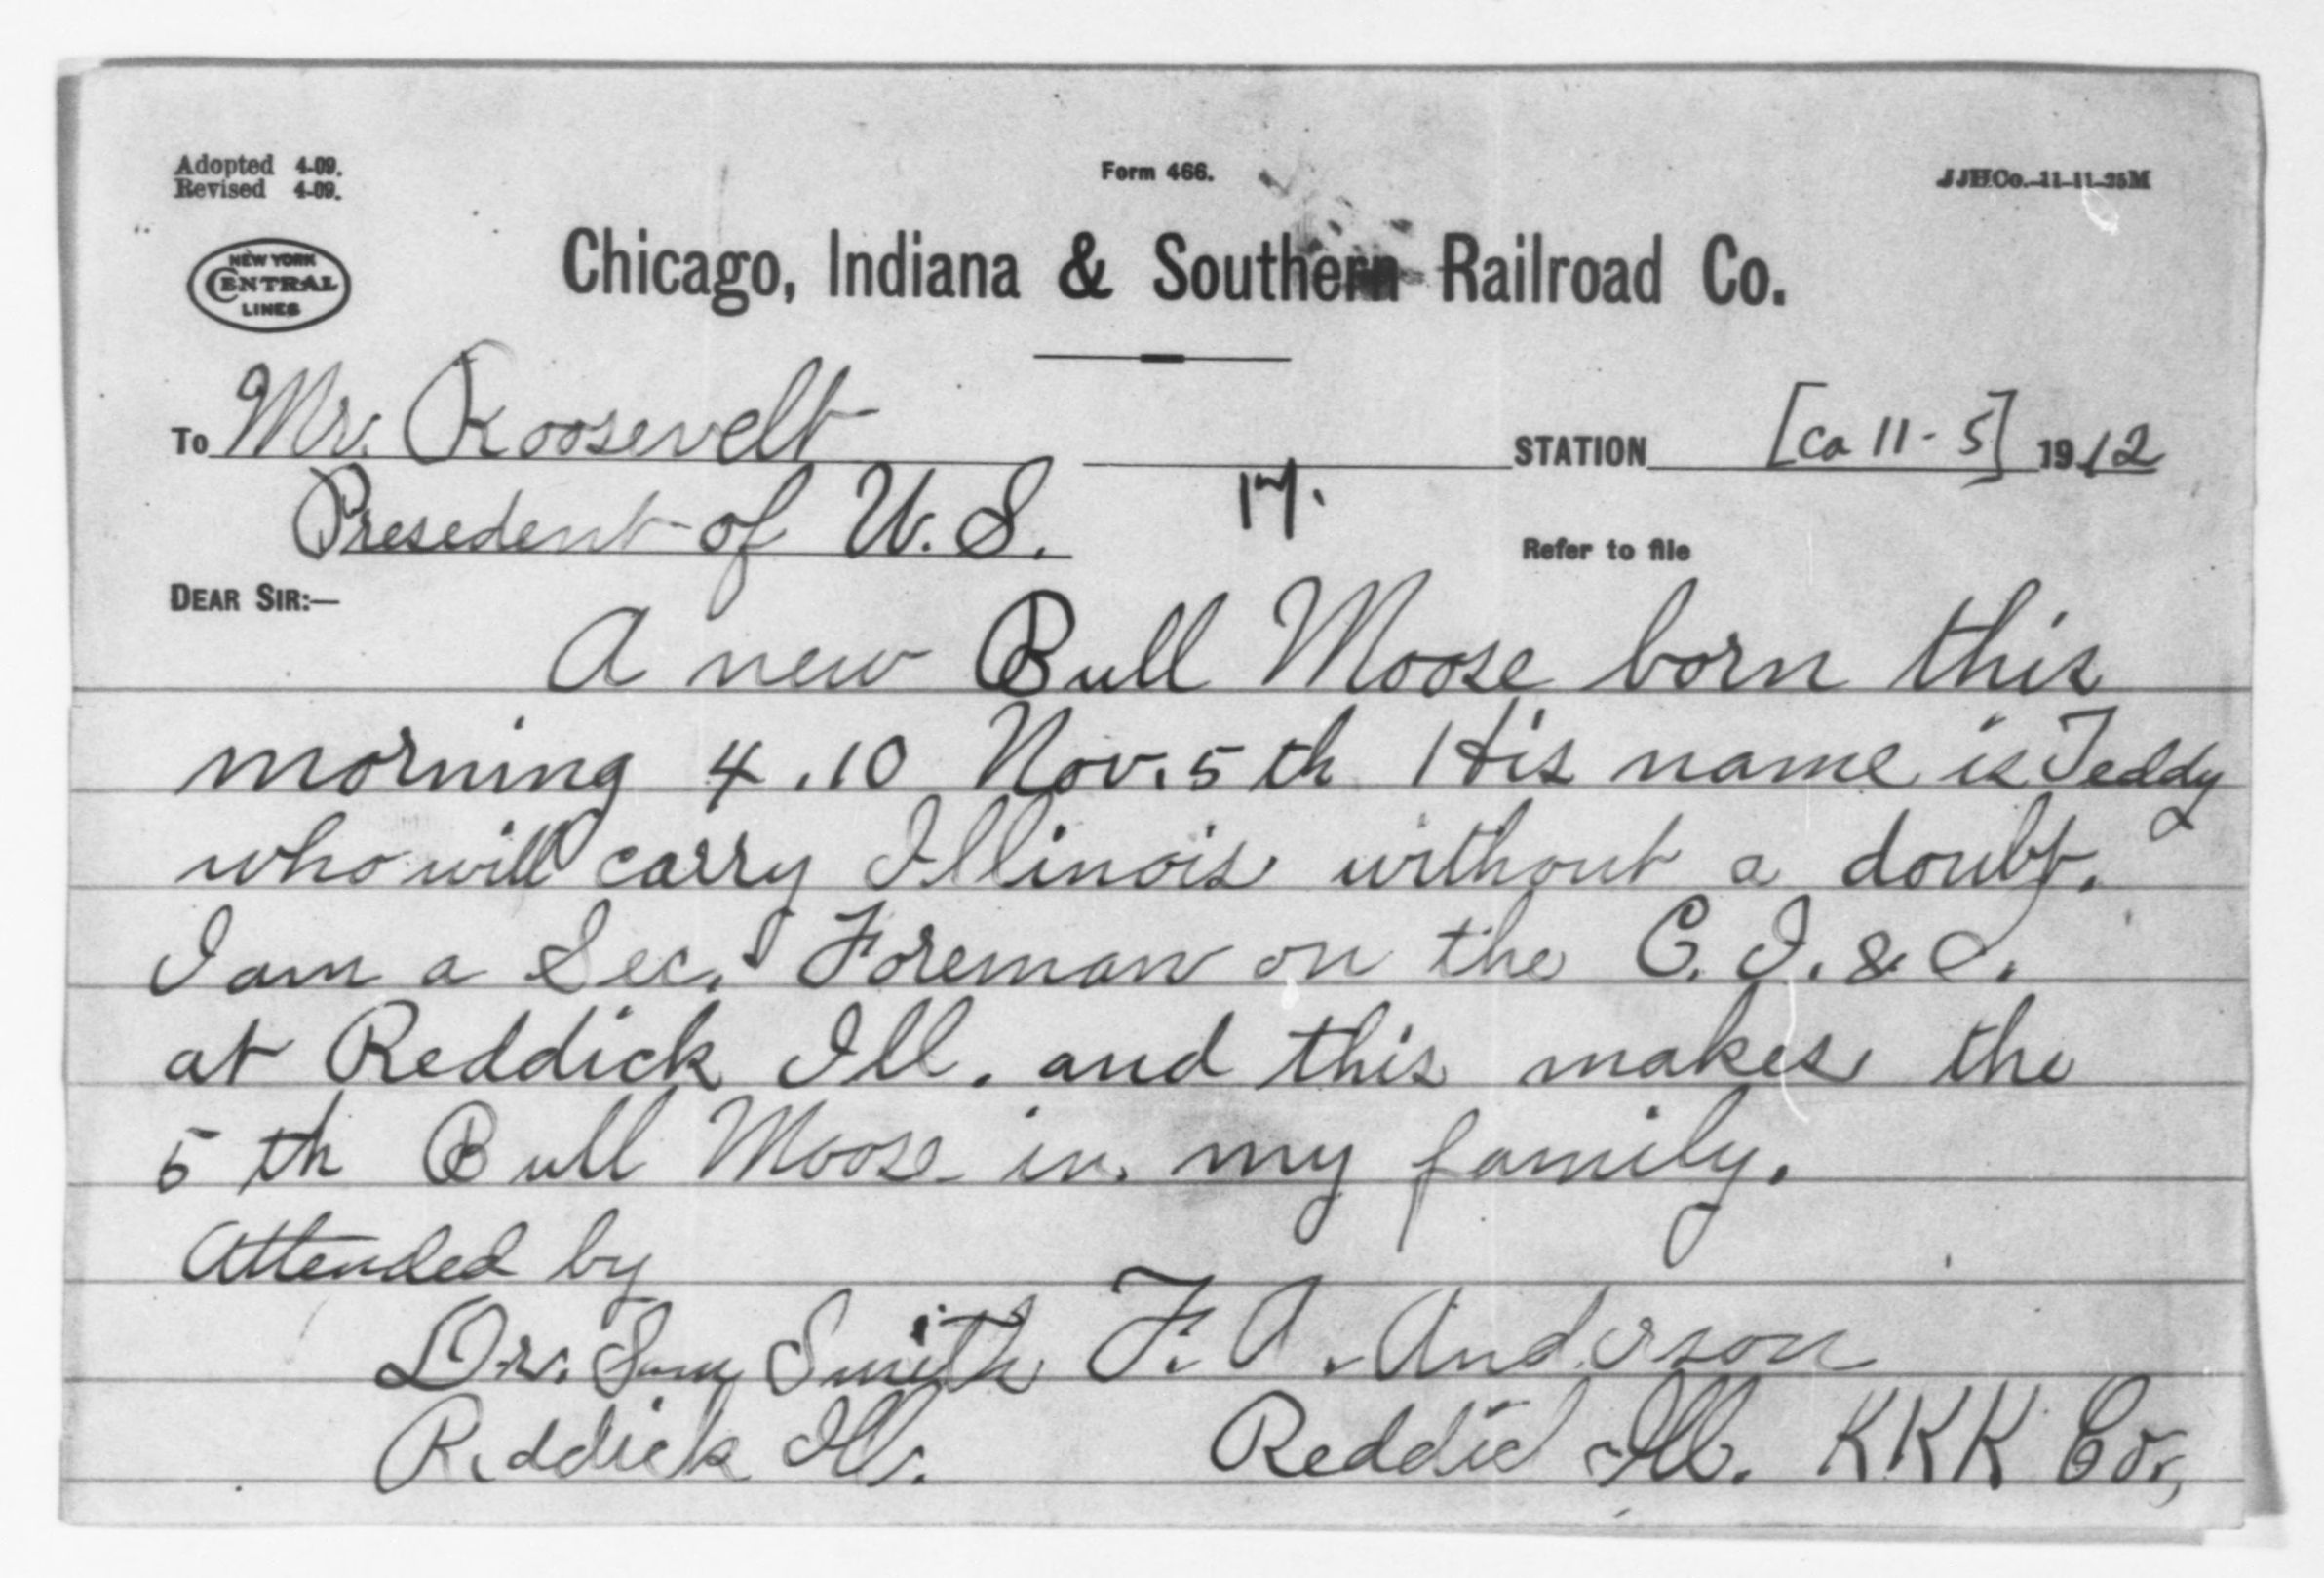 Adopted 4-09.
Revised 4-09.
Form 466.
JJHCo.-11-11-25M
NEW YORK
CENTRAL
LINES
Chicago, Indiana & Southern Railroad Co.
To Mr. Roosevelt
STATION [ca 11-5] 1912
Presedent of U.S.
Refer to file
DEAR SIR:—
A new Bull Moose born this
morning 4.10 Nov. 5th His name is Teddy
who will carry Illinois without a doubt.
I am a Sec. Foreman on the C. I. & S.
at Reddick Ill. and this makes the
5th Bull Moose in my family.
Attended by
Dr. Sam Smith F. A. Anderson
Reddick Ill. Reddic Ill. KKK Co,